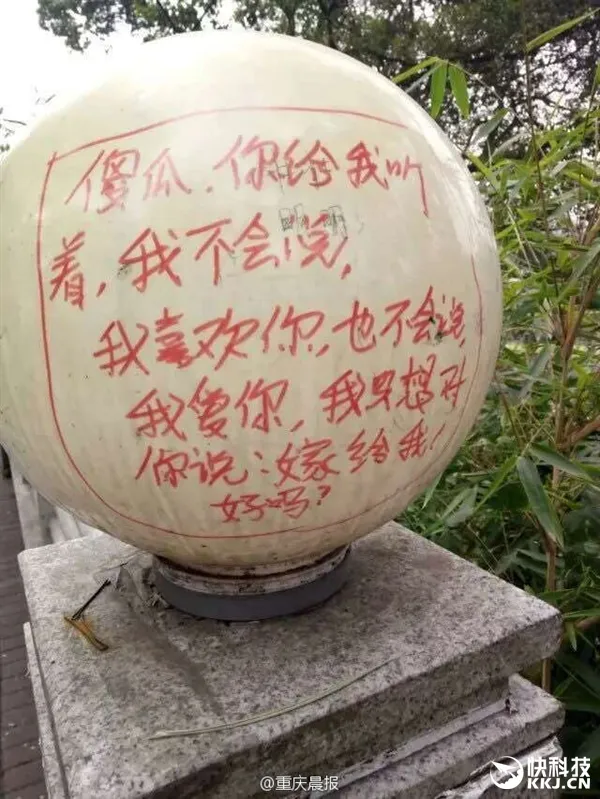 傻瓜，你给我听
着，我不会说，
我喜欢你，也不会说，
我爱你，我只想对
你说：嫁给我！
好吗？
@重庆晨报
快科技
KKJ.CN